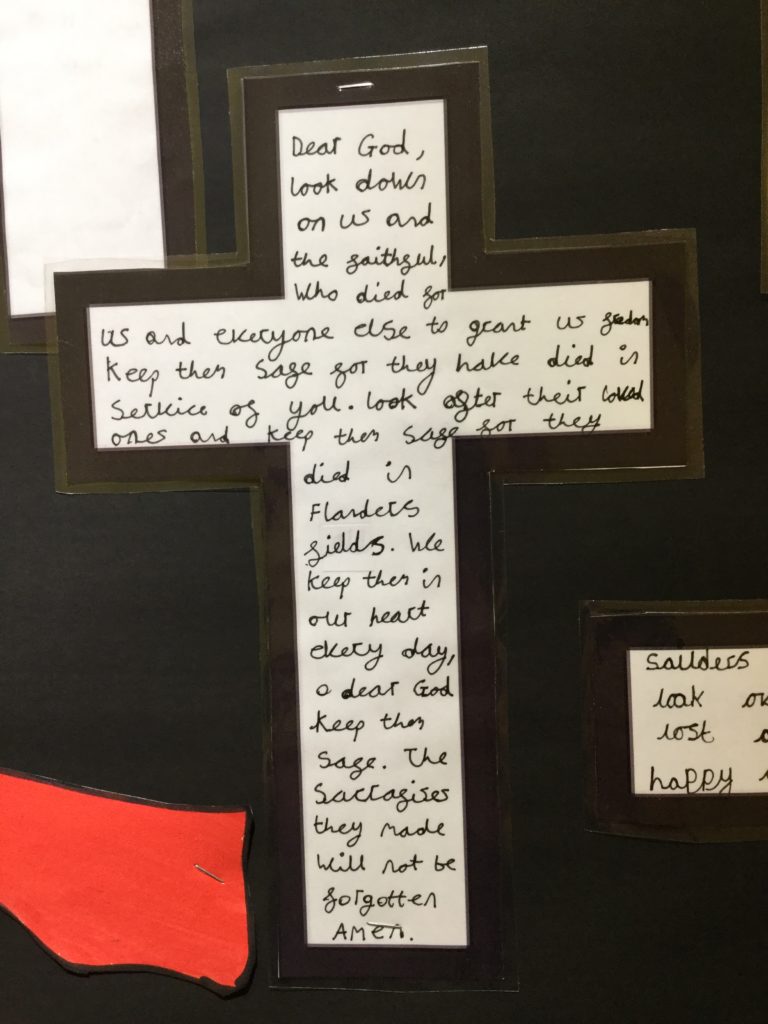 Dear God,
look down
on us and
the faithful,
Who died for
us and everyone else to grant us freedom
keep them safe for they have died in
service of you. look after their loved
ones and keep them safe for they
died in
Flanders
fields. We
keep them in
our heart
every day,
o dear God
keep them
safe. The
Sacrafises
they made
will not be
forgotten
Amen.
look
lost
happy